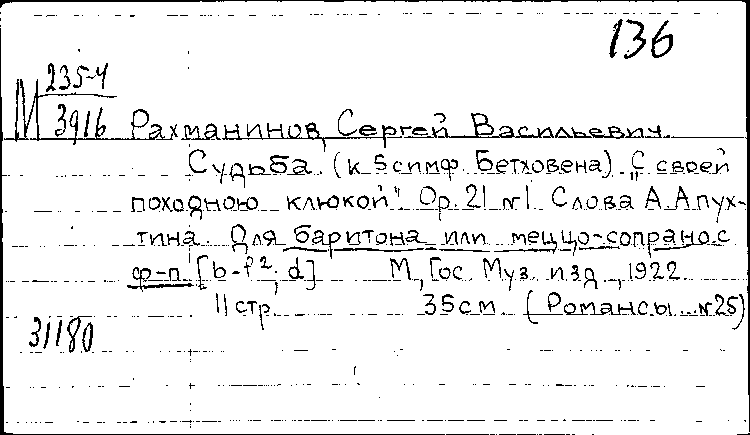 136
М 235-4
3916 Рахманинов, Сергей Васильевич.
Судьба. (к 5 симф. Бетховена). „С своей
походною клюкой". Op. 21 №1. Слова А. Апух-
тина. Для баритона или меццо-сопрано с
ф-п. [b-f², d] М., Гос. Муз. изд., 1922.
11 стр. 35 см. (Романсы №25)
31180